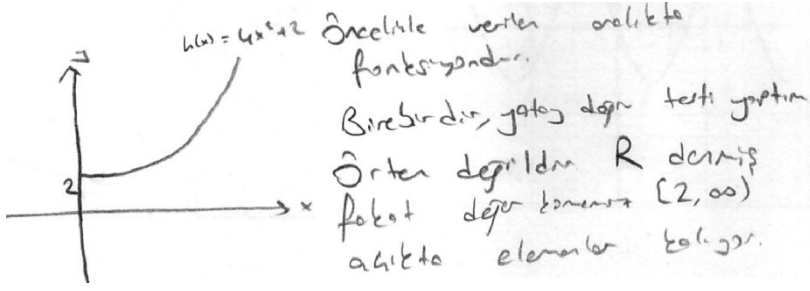 h(x) = 4x²+2
Öncelikle verilen aralıkta
fonksiyondur.
Birebirdir, yatay doğru testi yaptım
Örten değildir R demiş
fakat değer kümemiz [2, ∞)
açıkta elemanlar kalıyor.
y
2
x